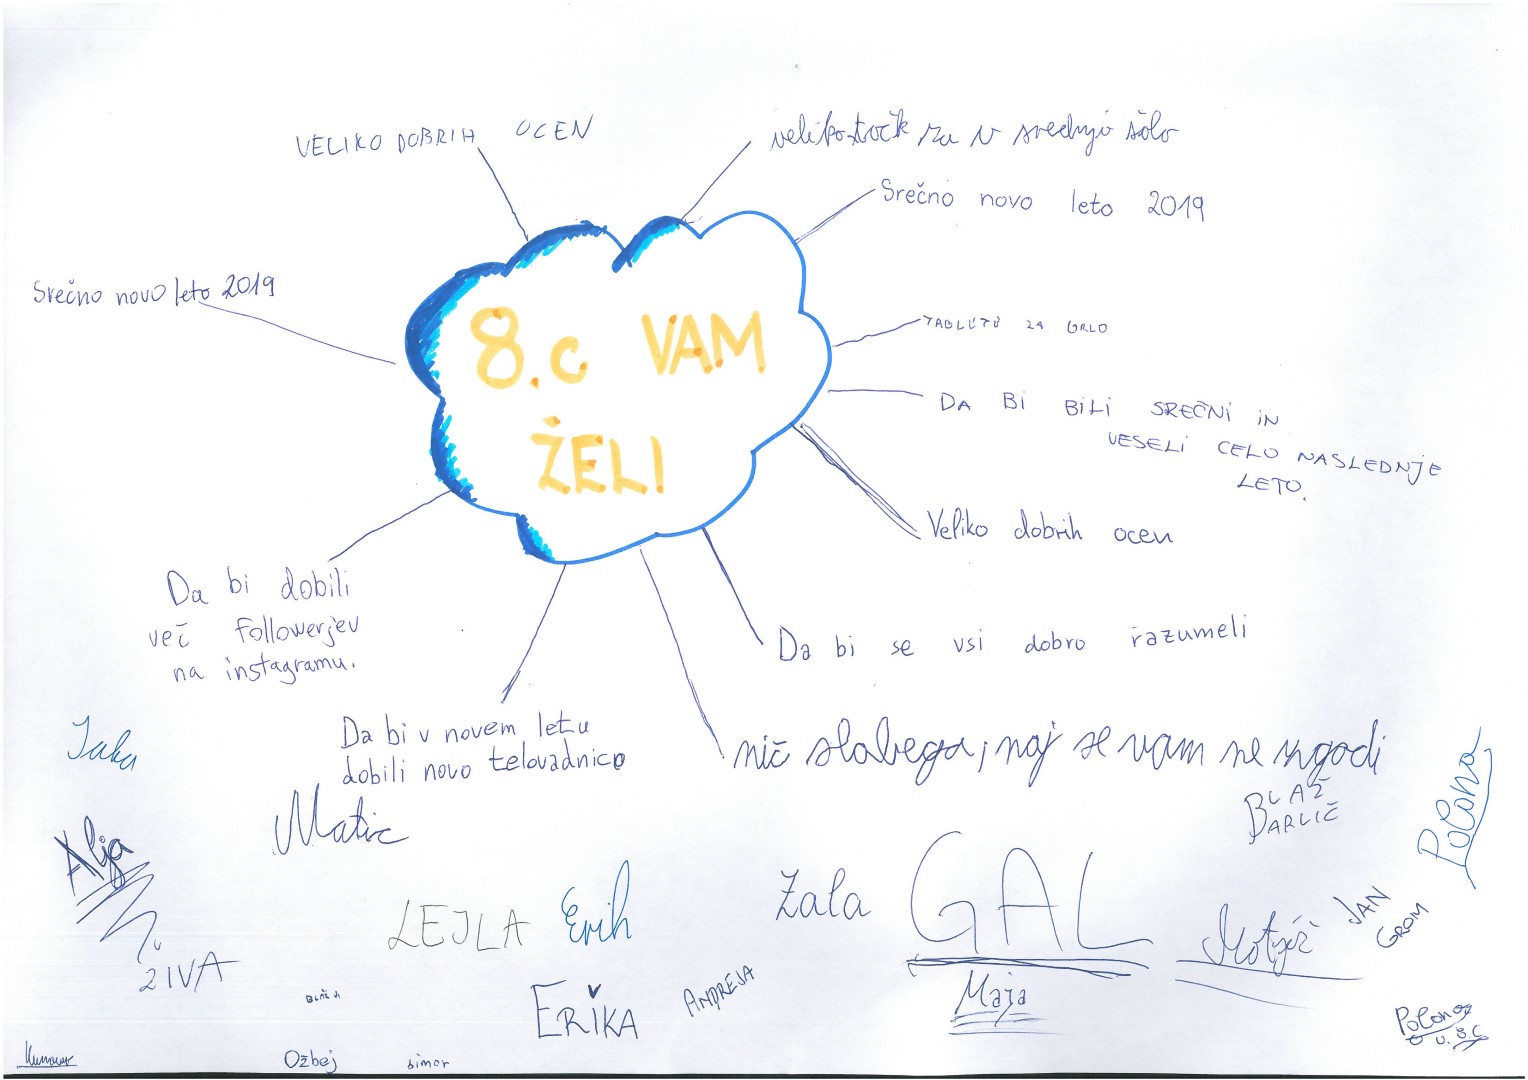 VELIKO DOBRIH OCEN
veliko točk za v srednjo šolo
Srečno novo leto 2019
Srečno novo leto 2019
8.c VAM
ŽELI
TABLETE ZA GRLO
DA BI BILI SREČNI IN
VESELI CELO NASLEDNJE
LETO.
Veliko dobrih ocen
Da bi dobili
več followerjev
na instagramu.
Da bi se vsi dobro razumeli
Da bi v novem letu
dobili novo telovadnico
nič slabega, naj se vam ne zgodi
Jaka
Matic
BLAŽ
BARLIČ
Polona
Alja
LEJLA
Erik
Zala
GAL
Matjaž
JAN
GROM
ŽIVA
ERIKA
ANDREJA
Maja
Polona
Ožbej